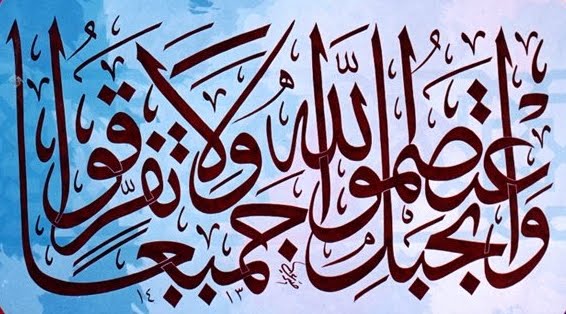 واعتصموا بحبل الله جميعا ولا تفرقوا
١٤١٣